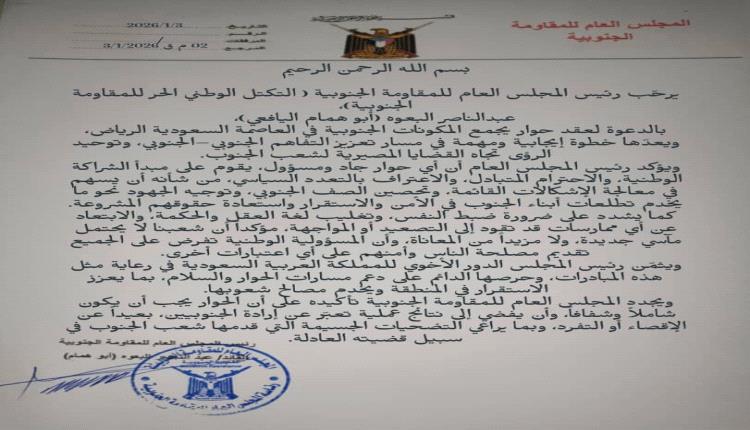 المجلس العام للمقاومة
الجنوبية
التاريخ : 2026/1/3
الرقم :
المرفقات :
المرجع : 02 م ق/3/1/2026
بسم الله الرحمن الرحيم
يرحّب رئيس المجلس العام للمقاومة الجنوبية ( التكتل الوطني الحر للمقاومة
الجنوبية)،
عبدالناصر البعوه (أبو همام اليافعي)،
بالدعوة لعقد حوار يجمع المكونات الجنوبية في العاصمة السعودية الرياض،
ويعدّها خطوة إيجابية ومهمة في مسار تعزيز التفاهم الجنوبي–الجنوبي، وتوحيد
الرؤى تجاه القضايا المصيرية لشعب الجنوب.
ويؤكد رئيس المجلس العام أن أي حوار جاد ومسؤول، يقوم على مبدأ الشراكة
الوطنية، والاحترام المتبادل، والاعتراف بالتعدد السياسي، من شأنه أن يسهم
في معالجة الإشكالات القائمة، وتحصين الصف الجنوبي، وتوجيه الجهود نحو ما
يخدم تطلعات أبناء الجنوب في الأمن والاستقرار واستعادة حقوقهم المشروعة.
كما يشدد على ضرورة ضبط النفس، وتغليب لغة العقل والحكمة، والابتعاد
عن أي ممارسات قد تقود إلى التصعيد أو المواجهة، مؤكداً أن شعبنا لا يحتمل
مآسي جديدة، ولا مزيداً من المعاناة، وأن المسؤولية الوطنية تفرض على الجميع
تقديم مصلحة الناس وأمنهم على أي اعتبارات أخرى.
ويثمّن رئيس المجلس الدور الأخوي للمملكة العربية السعودية في رعاية مثل
هذه المبادرات، وحرصها الدائم على دعم مسارات الحوار والسلام، بما يعزز
الاستقرار في المنطقة ويخدم مصالح شعوبها.
ويجدد المجلس العام للمقاومة الجنوبية تأكيده على أن الحوار يجب أن يكون
شاملاً وشفافاً، وأن يفضي إلى نتائج عملية تعبّر عن إرادة الجنوبيين، بعيداً عن
الإقصاء أو التفرد، وبما يراعي التضحيات الجسيمة التي قدمها شعب الجنوب في
سبيل قضيته العادلة.
رئيس المجلس العام للمقاومة الجنوبية
القائد/ عبد الناصر البعوه (أبو همام)